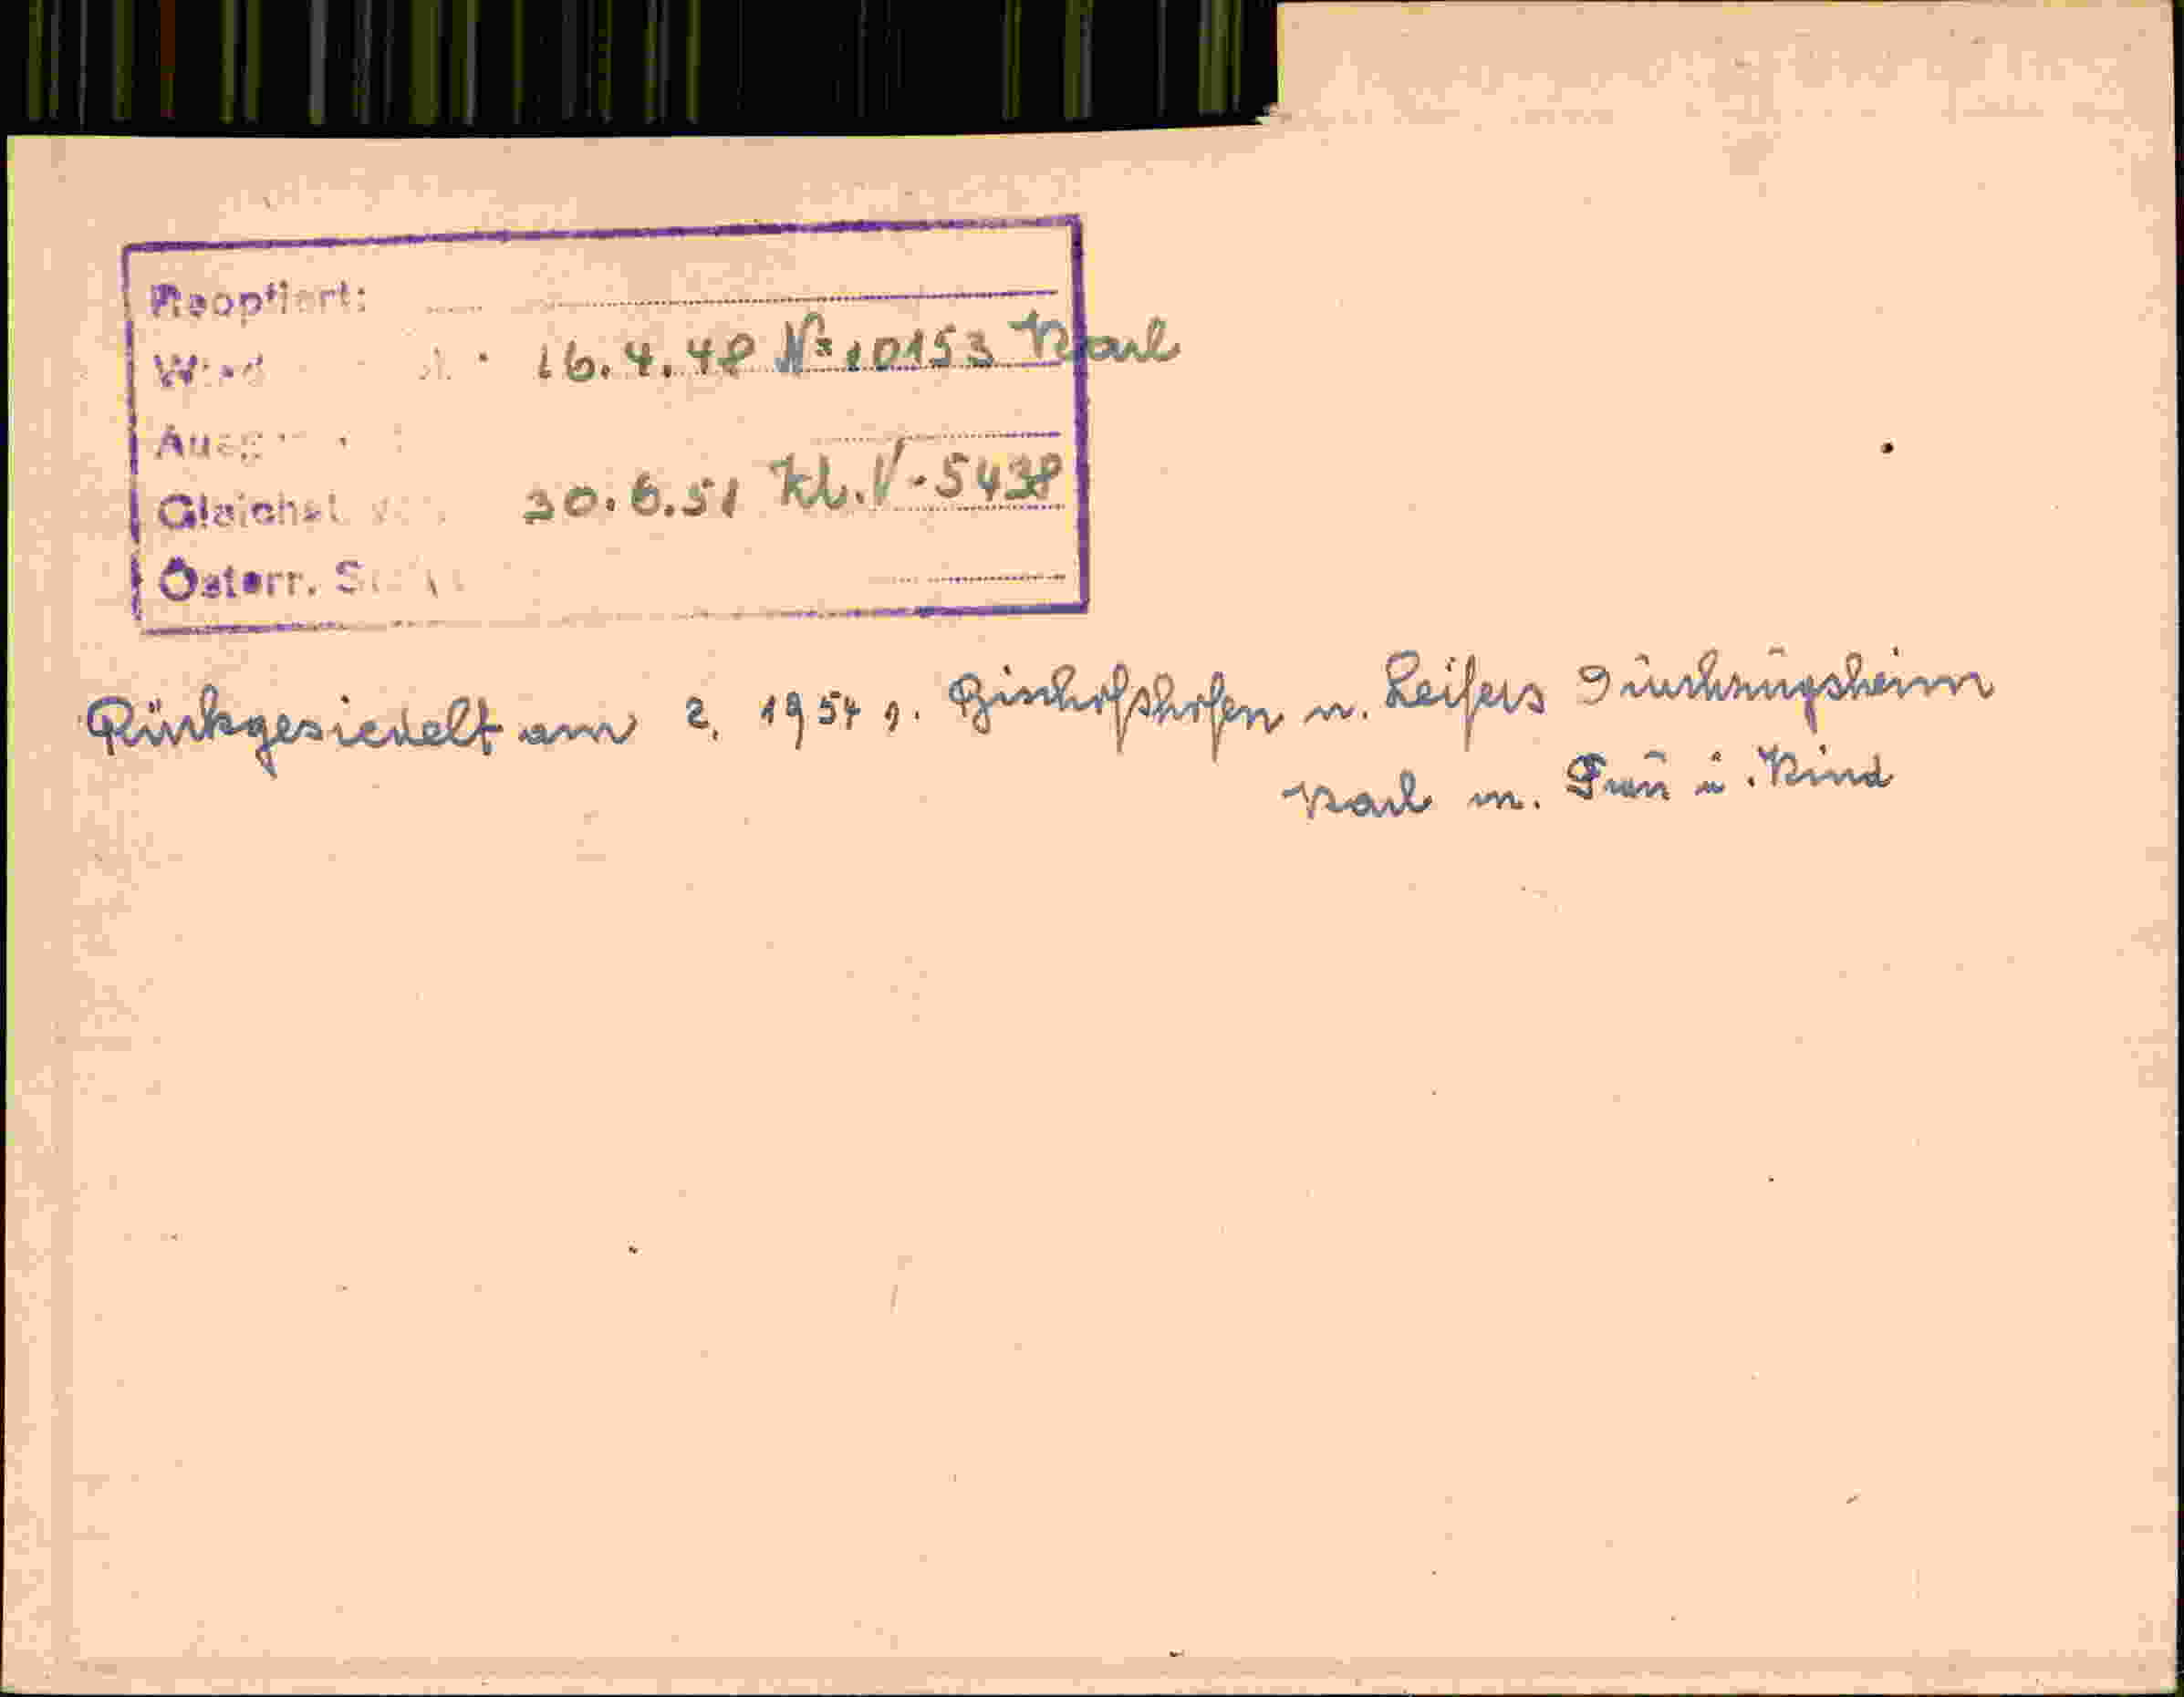 Reoptiert:
16.4.48 N: 10153 Karl
Gleichst 30.6.51 Kl. V. 5438
Österr.
Rückgesiedelt am 2. 1954 v. Bischofshofen n. Leifers Durchzugsheim
Karl m. Frau u. Kind